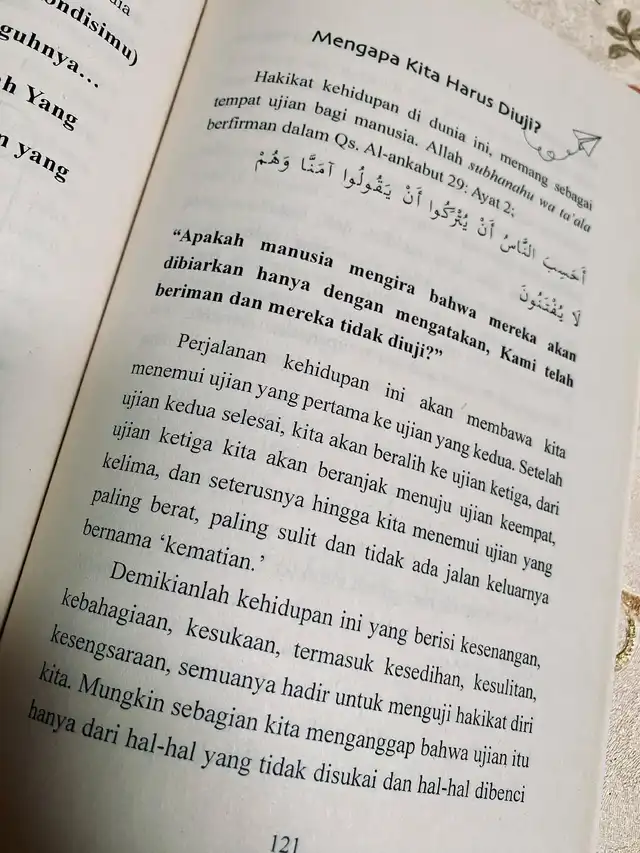 ondisimu)
guhnya...
h Yang
yang
Mengapa Kita Harus Diuji?
Hakikat kehidupan di dunia ini, memang sebagai
tempat ujian bagi manusia. Allah subhanahu wa ta'ala
berfirman dalam Qs. Al-ankabut 29: Ayat 2;
أَحَسِبَ النَّاسُ أَنْ يُتْرَكُوا أَنْ يَقُولُوا آمَنَّا وَهُمْ
لَا يُفْتَنُونَ
“Apakah manusia mengira bahwa mereka akan
dibiarkan hanya dengan mengatakan, Kami telah
beriman dan mereka tidak diuji?”
Perjalanan kehidupan ini akan membawa kita
menemui ujian yang pertama ke ujian yang kedua. Setelah
ujian kedua selesai, kita akan beralih ke ujian ketiga, dari
ujian ketiga kita akan beranjak menuju ujian keempat,
kelima, dan seterusnya hingga kita menemui ujian yang
paling berat, paling sulit dan tidak ada jalan keluarnya
bernama ‘kematian.’
Demikianlah kehidupan ini yang berisi kesenangan,
kebahagiaan, kesukaan, termasuk kesedihan, kesulitan,
kesengsaraan, semuanya hadir untuk menguji hakikat diri
kita. Mungkin sebagian kita menganggap bahwa ujian itu
hanya dari hal-hal yang tidak disukai dan hal-hal dibenci
121